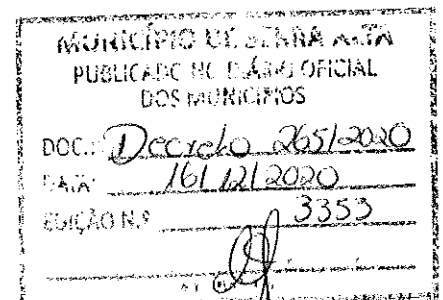 MUNICÍPIO DE SERRA ALTA
PUBLICADO NO DIÁRIO OFICIAL
DOS MUNICÍPIOS
DOC.: Decreto 265/2020
DATA: 16/12/2020
EDIÇÃO N.º 3353